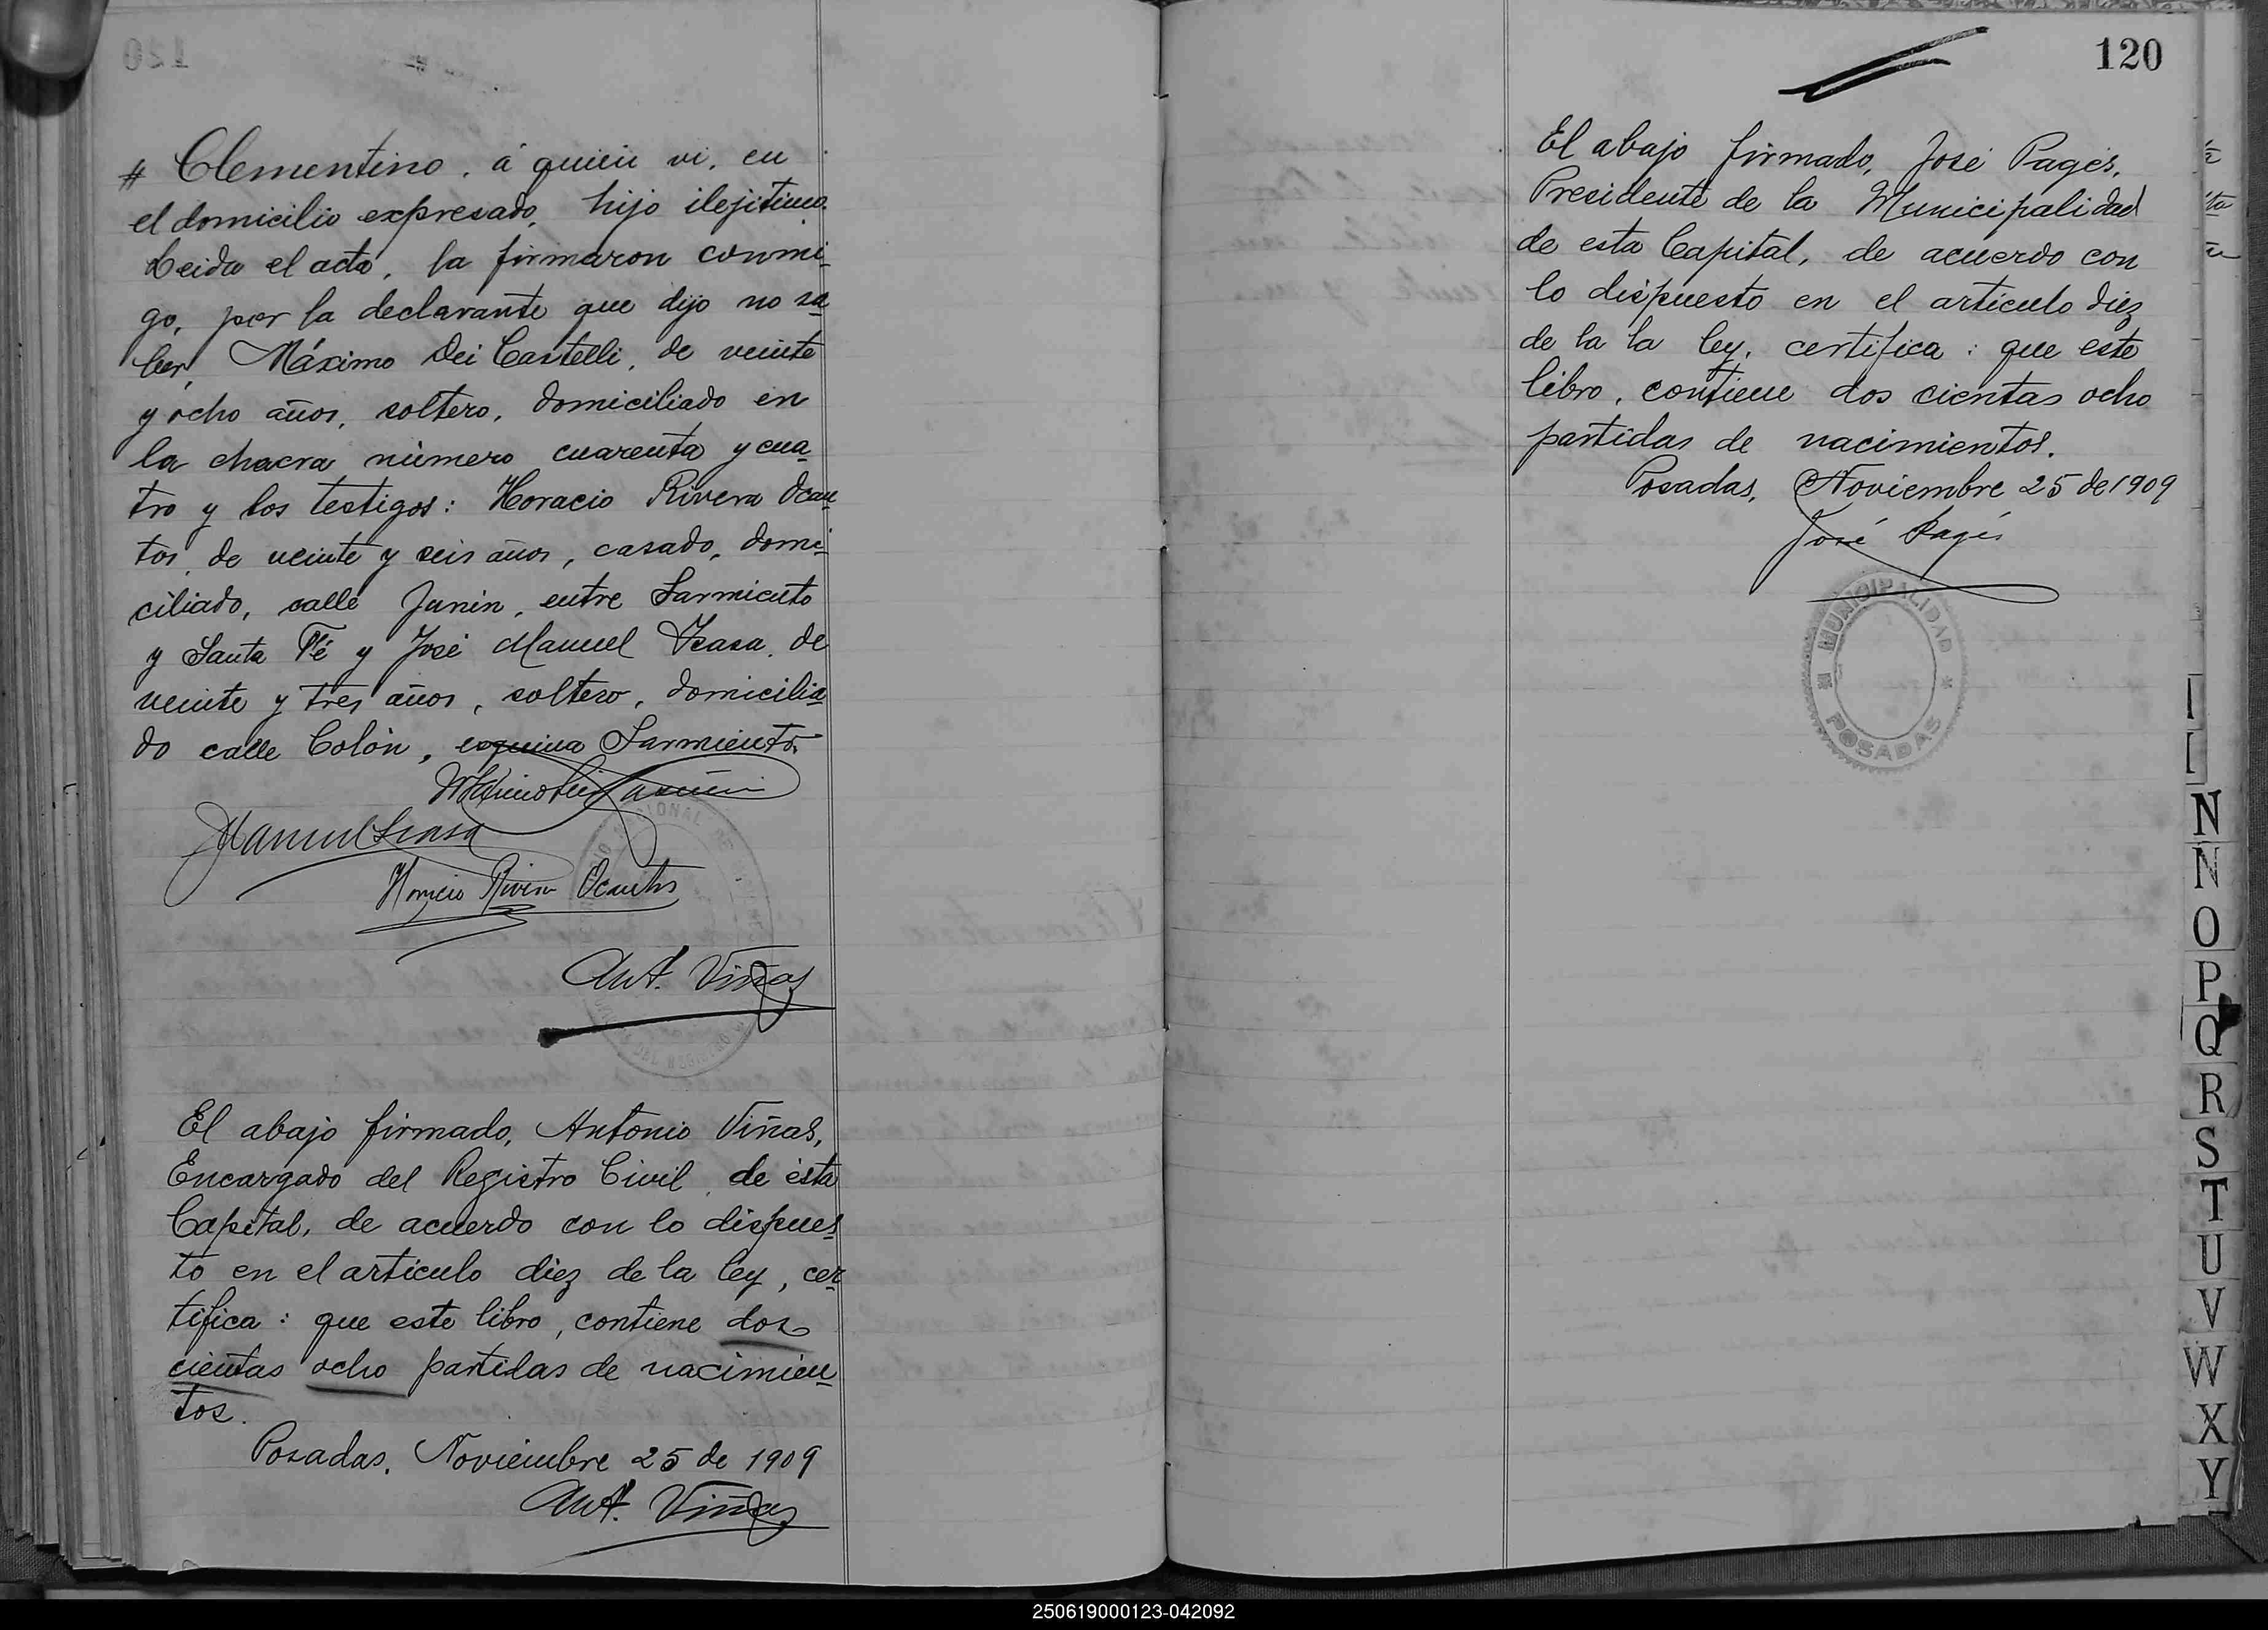 # Clementino, á quien vi, en
el domicilio expresado, hijo ilejitimo.
Leida el acta, la firmaron conmi-
go, por la declarante que dijo no sa-
ber, Máximo Dei Castelli, de veinte
y ocho años, soltero, domiciliado en
la chacra número cuarenta y cua-
tro y los testigos: Horacio Rivera Ocan-
tos, de veinte y seis años, casado, domi-
ciliado, calle Junin, entre Sarmiento
y Santa Fé y José Manuel Isasa, de
veinte y tres años, soltero, domicilia-
do calle Colón, esquina Sarmiento.
JManuel Isasa
Horacio Rivera Ocantos
Ant. Viñas
El abajo firmado, Antonio Viñas,
Encargado del Registro Civil, de ésta
Capital, de acuerdo con lo dispues-
to en el artículo diez de la ley, cer-
tifica: que este libro, contiene dos
cientas ocho partidas de nacimien-
tos.
Posadas, Noviembre 25 de 1909
Ant. Viñas
120
El abajo firmado, José Pagés,
Presidente de la Municipalidad
de esta Capital, de acuerdo con
lo dispuesto en el artículo diez
de la la ley, certifica: que este
libro, contiene dos cientas ocho
partidas de nacimientos.
Posadas, Noviembre 25 de 1909
José Pagés
MUNICIPALIDAD
POSADAS
N
N
O
P
Q
R
S
T
U
V
W
X
Y
250619000123-042092